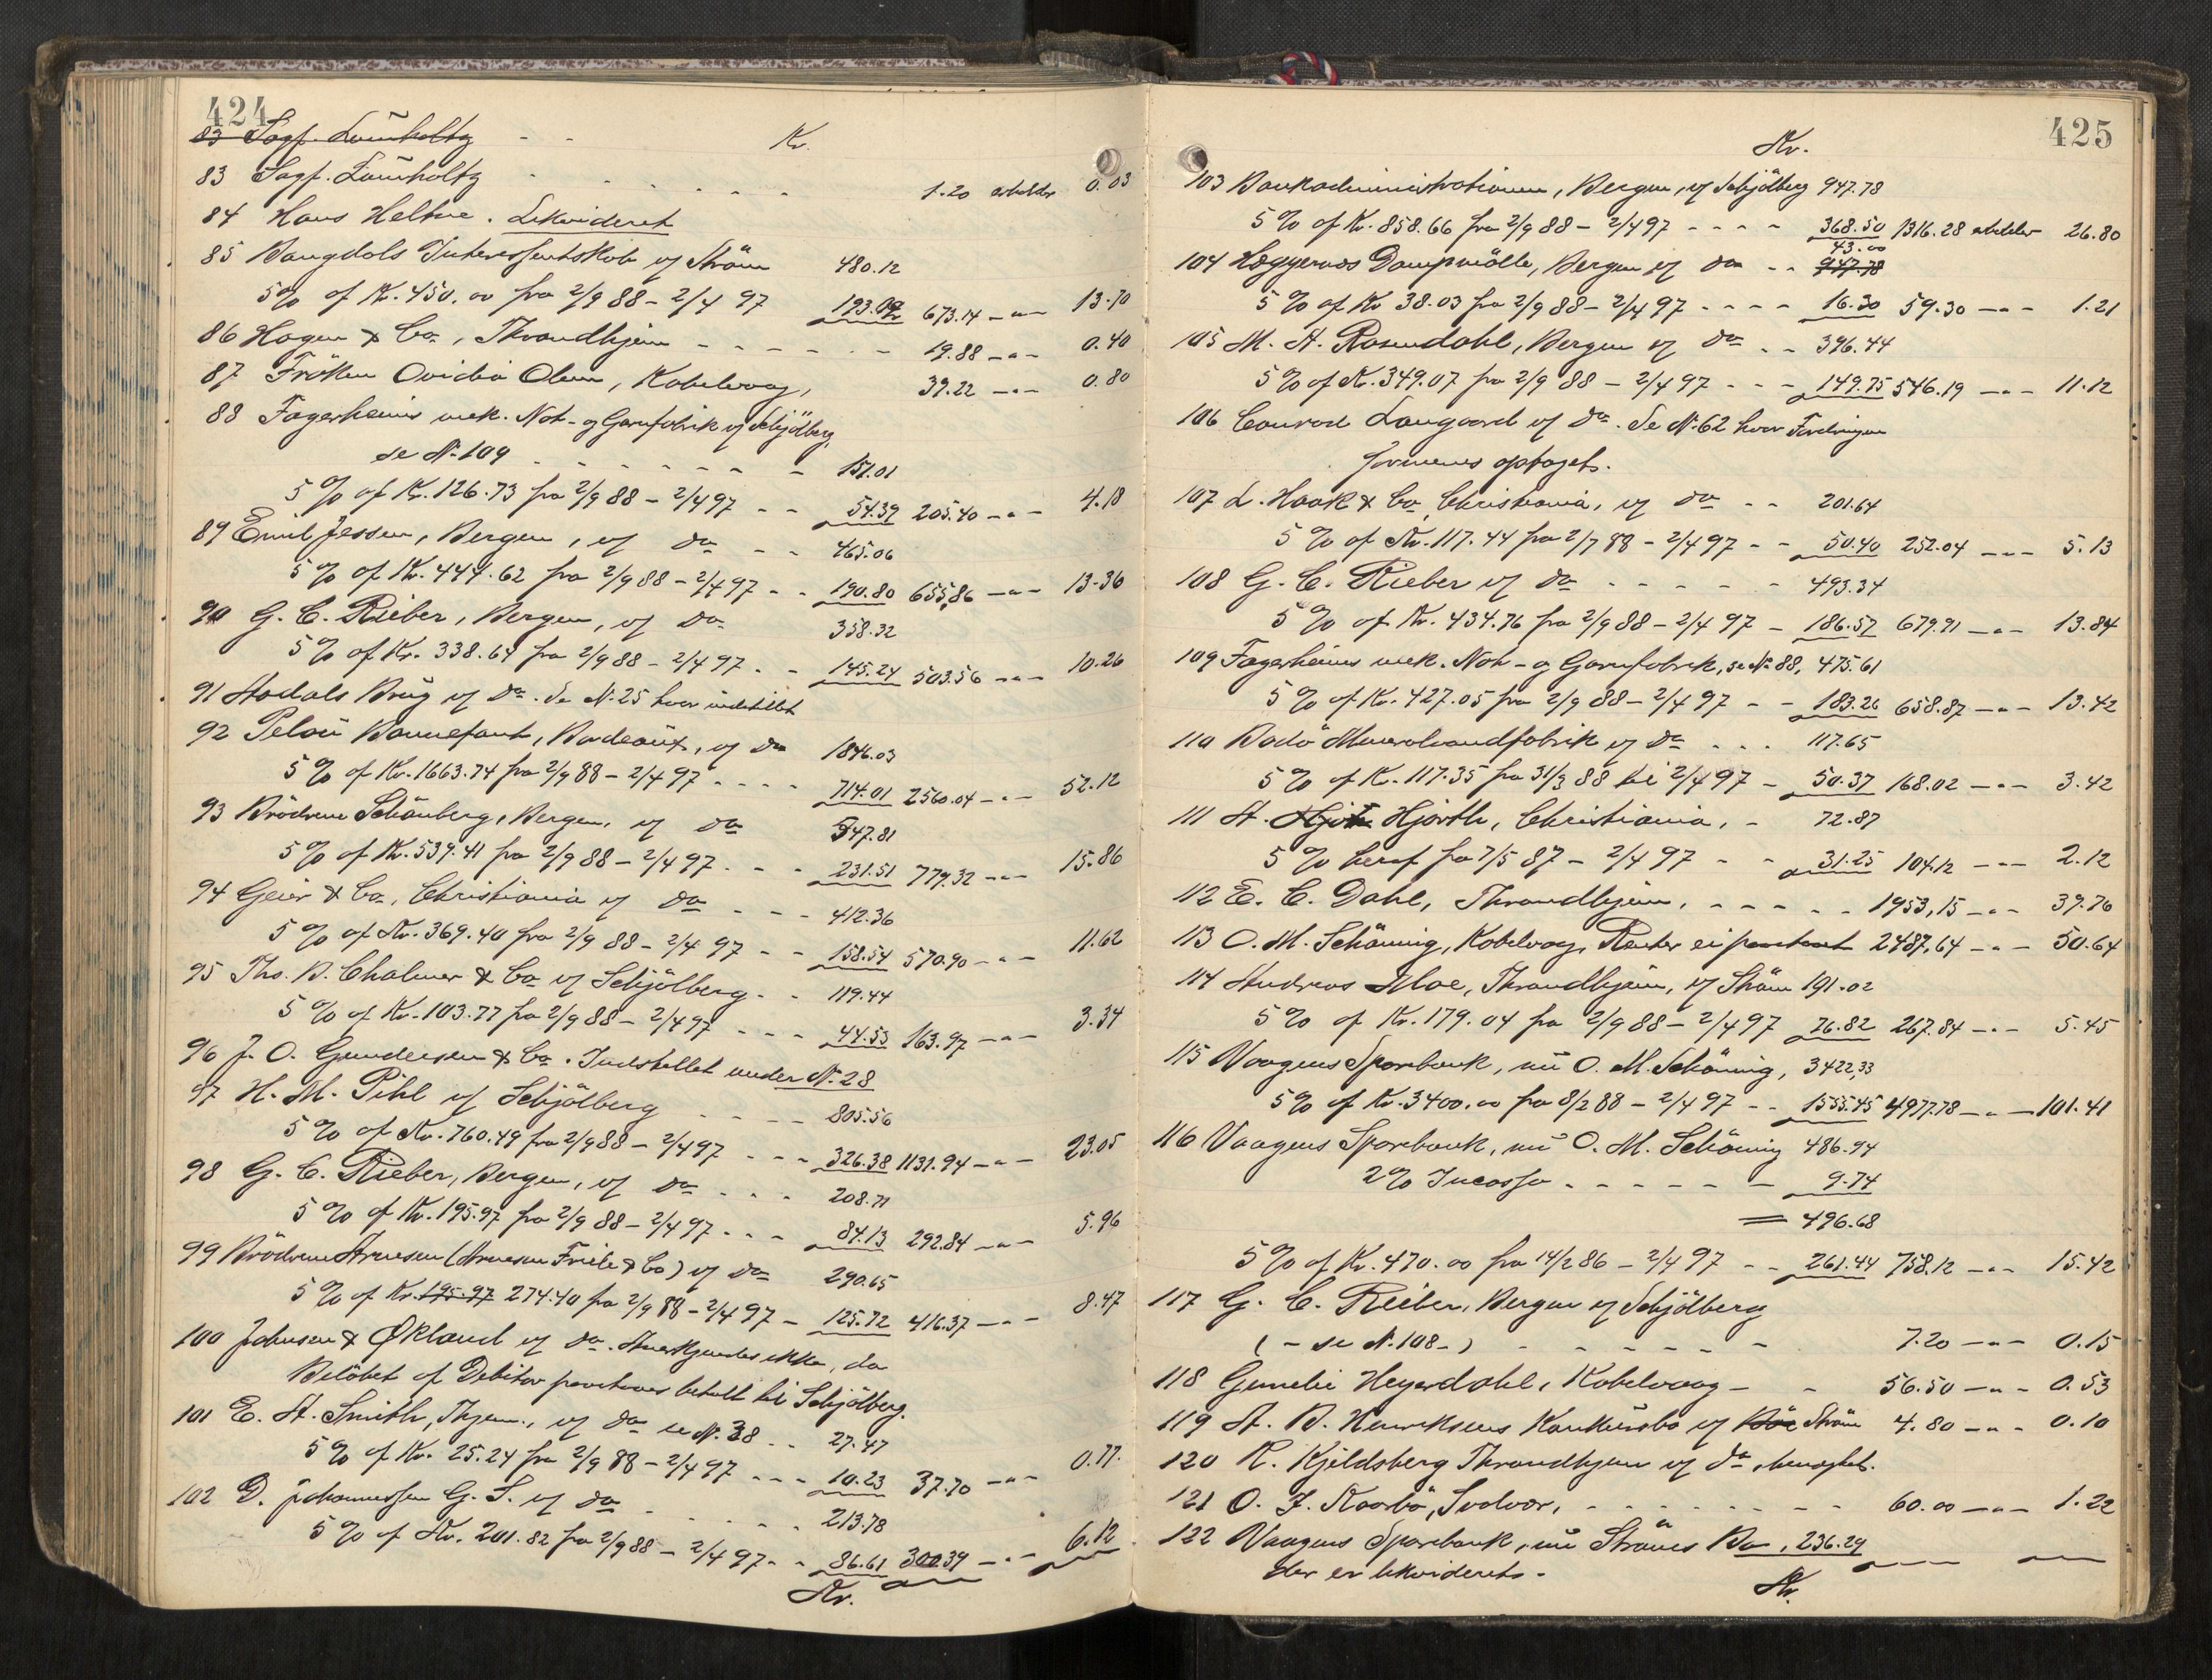 424
83 Sagf. Lumholtz - - Kr.
83 Sagf. Lumholtz - - - - - - 1.20 erholder 0.03
84 Hans Heltne. Likvideret
85 Bangdals Interessentskab v/ Strøm 480.12
5% af Kr. 450.00 fra 2/9 88 - 2/4 97 193.02 673.14 -"- 13.70
86 Hagen & Co, Throndhjem - - - - - - 19.88 -"- 0.40
87 Frøken Ovidia Olsen, Kabelvaag, 39.22 -"- 0.80
88 Fagerheims mek. Not- og Garnfabrik v/ Schjölberg,
se N. 109 - - - - - - - 151.01
5% af Kr. 126.73 fra 2/9 88 - 2/4 97 - - 54.39 205.40 -"- 4.18
89 Emil Jessen, Bergen, v/ do - - 465.06
5% af Kr. 444.62 fra 2/9 88 - 2/4 97 - - 190.80 655.86 -"- 13.36
90 G. C. Rieber, Bergen, v/ do 358.32
5% af Kr. 338.64 fra 2/9 88 - 2/4 97 - - 145.24 503.56 -"- 10.26
91 Hodals Brug v/ do. Se N. 25 hvor indstillet
92 Pelou Bonnefant, Bordeaux, v/ do 1846.03
5% af Kr. 1663.74 fra 2/9 88 - 2/4 97 - - - - 714.01 2560.04 -"- 52.12
93 Brödrene Schänberg, Bergen, v/ do 547.81
5% af Kr. 539.41 fra 2/9 88 - 2/4 97 - - - 231.51 779.32 -"- 15.86
94 Geier & Co, Christiania v/ do - - - 412.36
5% af Kr. 369.40 fra 2/9 88 - 2/4 97 - - 158.54 570.90 -"- 11.62
95 Ths. B. Chalmer & Co v/ Schjölberg - - 119.44
5% af Kr. 103.77 fra 2/9 88 - 2/4 97 - - - 44.53 163.97 -"- 3.34
96 J. O. Gundersen & Co. Indstillet under N. 28
97 H. M. Pihl v/ Schjölberg - - - - 805.56
5% af Kr. 760.49 fra 2/9 88 - 2/4 97 - - - 326.38 1131.94 -"- 23.05
98 G. C. Rieber, Bergen, v/ do - - - - 208.71
5% af Kr. 195.97 fra 2/9 88 - 2/4 97 - - - 84.13 292.84 -"- 5.96
99 Brödrene Arnesen (Arnesen Friele & Co) v/ do 290.65
5% af Kr. 195.97 274.40 fra 2/9 88 - 2/4 97 - 125.72 416.37 -"- 8.47
100 Johnsen & Økland v/ do. Anerkjendes ikke, da
Beløbet af Debitor paastaaes betalt til Schjölberg.
101 E. A. Smith, Thjem., v/ do se N. 38 - - 27.47
5% af Kr. 25.24 fra 2/9 88 - 2/4 97 - - - 10.23 37.70 -"- 0.77.
102 D. Johannessen G. S. v/ do - - - - - 213.78
5% af Kr. 201.82 fra 2/9 88 - 2/4 97 - - 86.61 300.39 -"- 6.12
Kr.
425
Kr.
103 Bankadministrationen, Bergen, v/ Schjölberg 947.78
5% af Kr. 858.66 fra 2/9 88 - 2/4 97 - - - - 368.50 1316.28 erholder 26.80
43.00
104 Hæggernæs Dampmölle, Bergen v/ do - - 947.78
5% af Kr 38.03 fra 2/9 88 - 2/4 97 - - - - 16.30 59.30 -"- 1.21
105 M. A. Rosendahl, Bergen v/ do - - 396.44
5% af Kr. 349.07 fra 2/9 88 - 2/4 97 - - - 149.75 546.19 -"- 11.12
106 Conrad Langaard v/ do. Se N. 62 hvor Fordringen
formenes optaget.
107 L. Haak & Co, Christiania, v/ do - - 201.64
5% af Kr. 117.44 fra 2/7 88 - 2/4 97 - - 50.40 252.04 -"- 5.13
108 G. C. Rieber v/ do - - - - - - 493.34
5% af Kr. 434.76 fra 2/9 88 - 2/4 97 - 186.57 679.91 -"- 13.84
109 Fagerheims mek. Not- og Garnfabrik, se N. 88, 475.61
5% af Kr. 427.05 fra 2/9 88 - 2/4 97 - - 183.26 658.87 -"- 13.42
110 Bodö Mineralvandfabrik v/ do - - - 117.65
5% af Kr. 117.35 fra 31/3 88 til 2/4 97 - 50.37 168.02 -"- 3.42
111 A. Hjorth, Christiania, - 72.87
5% heraf fra 7/5 87 - 2/4 97 - - 31.25 104.12 -"- 2.12
112 E. C. Dahl, Throndhjem, - - - - - 1953,15 -"- 39.76
113 O. M. Schöning, Kabelvaag, Renter ei paastaaet 2487,64 -"- 50.64
114 Andreas Moe, Throndhjem, v/ Strøm 191.02
5% af Kr. 179.04 fra 2/9 88 - 2/4 97 76.82 267.84 -"- 5.45
115 Vaagens Sparebank, nu O. M. Schöning, 3422,33
5% af Kr. 3400.00 fra 8/2 88 - 2/4 97 - - 1555.45 4977.78 -"- 101.41
116 Vaagens Sparebank, nu O. M. Schöning 486.94
2% Incasso - - - - - - 9.74
= 496.68
5% af Kr. 470.00 fra 14/2 86 - 2/4 97 - - 261.44 758.12 -"- 15.42
117 G. C. Rieber, Bergen v/ Schjölberg
( - se N. 108 - ) - - - - - - 7.20 -"- 0.15
118 Gunelie Heyerdahl, Kabelvaag - - 56.50 -"- 0.53
119 A. B. Henriksens Konkursbo v/ Strøm 4.80 -"- 0.10
120 R. Kjeldsberg Throndhjem v/ do, benægtet.
121 O. J. Kaarbö, Svolvær, - - - - - - - - 60.00 -"- 1.22
122 Vaagens Sparebank, nu Strøms Bo, 236.29
der er likvideret. - Kr.